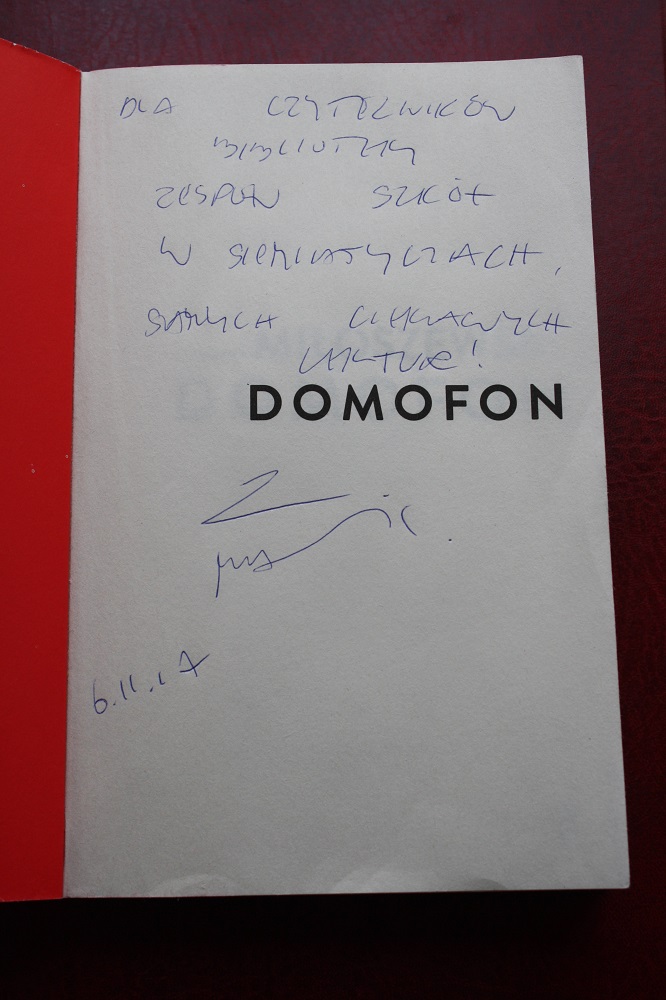 DLA CZYTELNIKÓW
BIBLIOTEKI
ZESPOŁU SZKÓŁ
W SIEMIATYCZACH,
SAMYCH CIEKAWYCH
LEKTUR!
DOMOFON
6.11.17